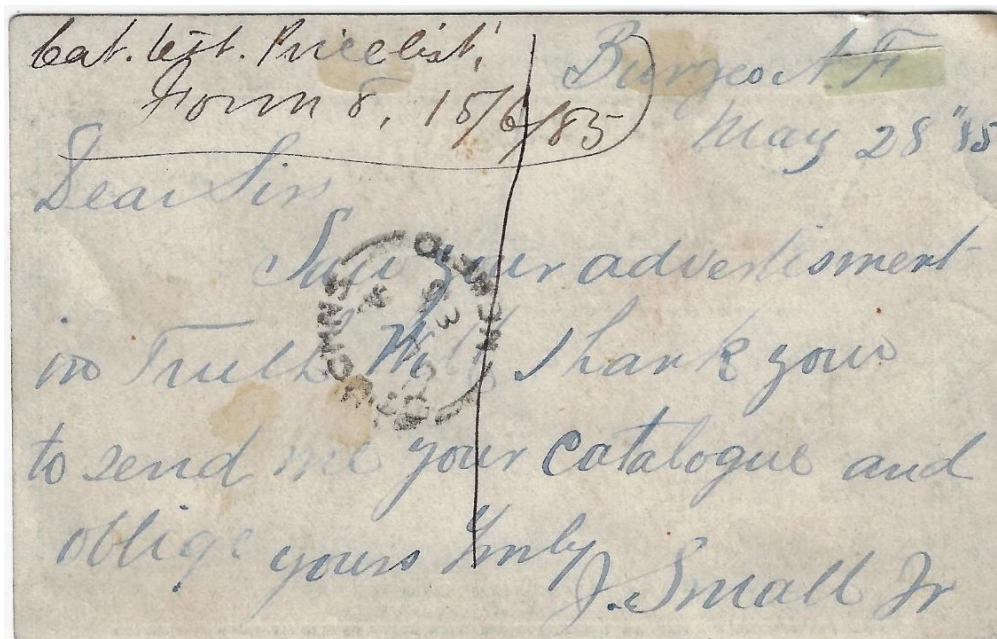 Cat. Lett. Pricelist,
Form 8, 15/6/85
Burgeo N. F.
May 28 "85
Dear Sir
Saw your advertisment
in Truth Will thank your
to send me your catalogue and
oblige yours Truly
J. Small Jr